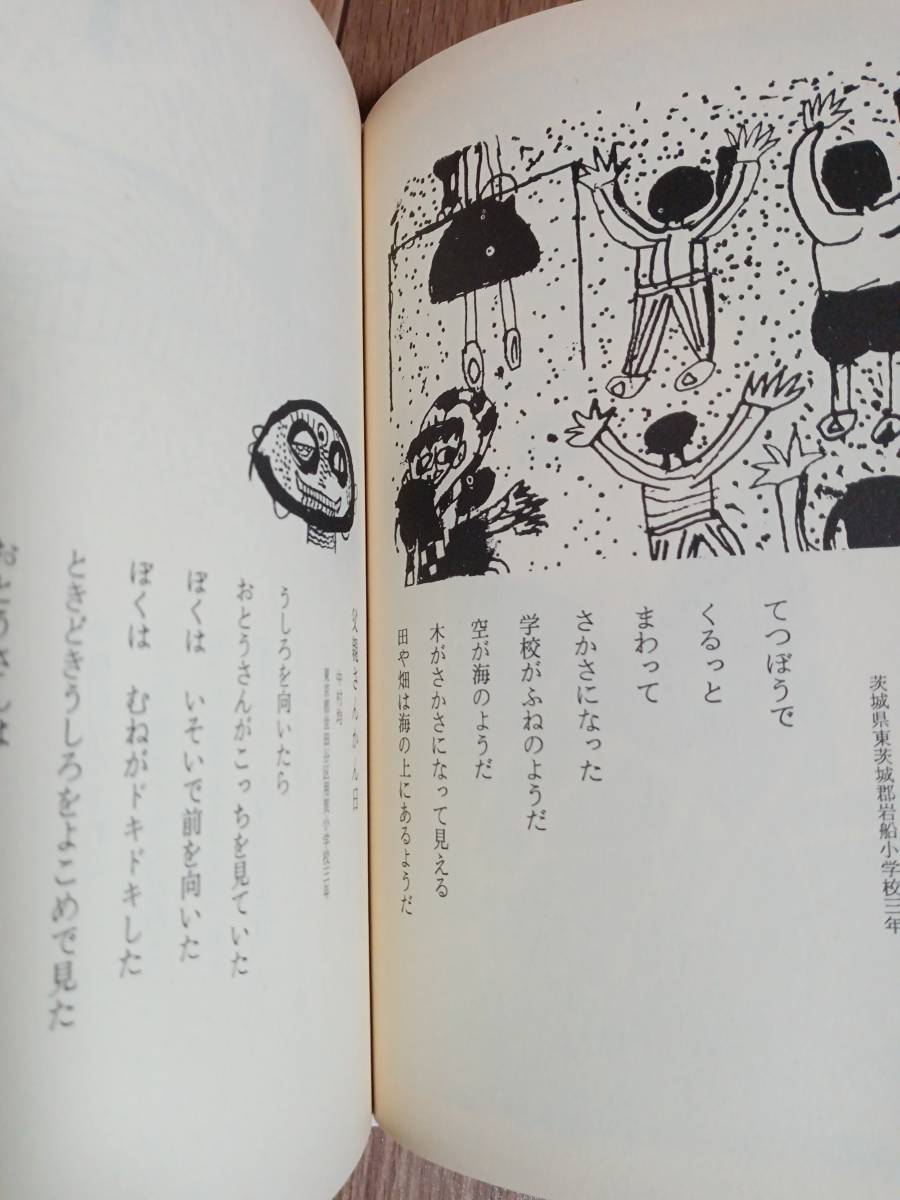 茨城県東茨城郡岩船小学校三年
てつぼうで
くるっと
まわって
さかさになった
学校がふねのようだ
空が海のようだ
木がさかさになって見える
田や畑は海の上にあるようだ
父親さんかん日
中村均
東京都世田谷区用賀小学校三年
うしろを向いたら
おとうさんがこっちを見ていた
ぼくは いそいで前を向いた
ぼくは むねがドキドキした
ときどきうしろをよこめで見た
おとうさんは